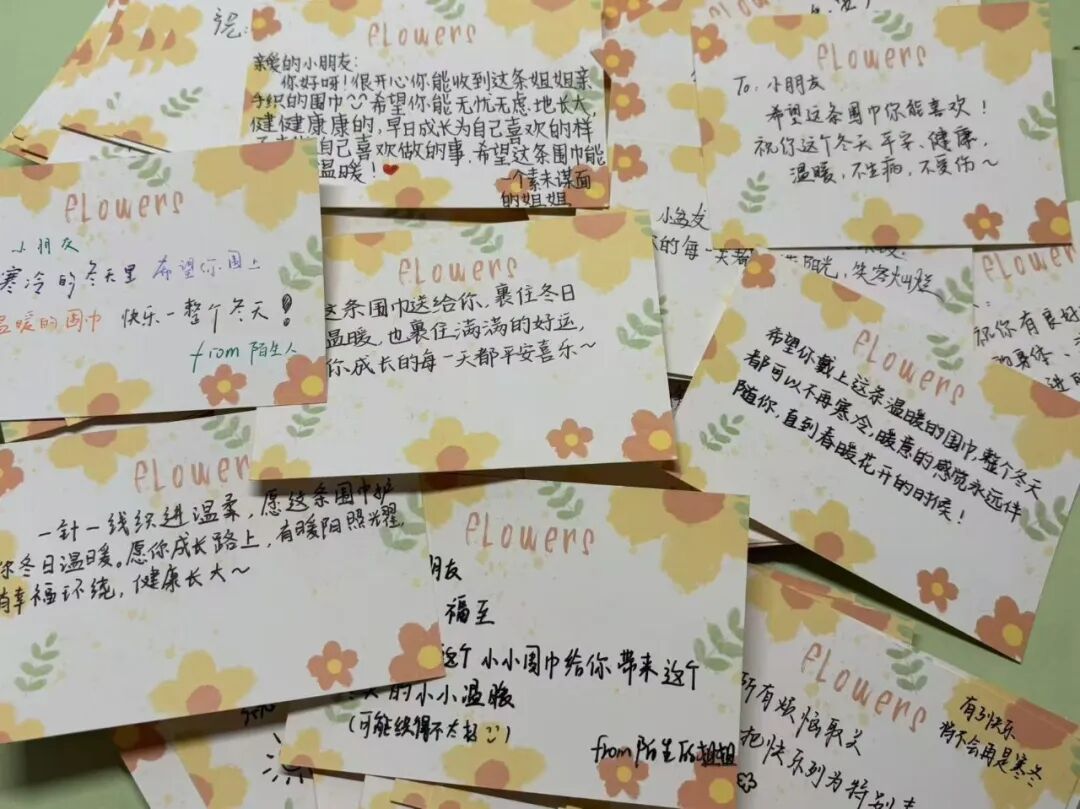 FLOWERS
亲爱的小朋友:
你好呀!很开心你能收到这条姐姐亲
手织的围巾 希望你能无忧无虑地长大,
健健康康的,早日成长为自己喜欢的样
自己喜欢做的事,希望这条围巾能
温暖!
一个素未谋面
的姐姐
FLOWERS
To. 小朋友
希望这条围巾你能喜欢!
祝你这个冬天平安、健康,
温暖,不生病,不受伤~
FLOWERS
小朋友
寒冷的冬天里 希望你围上
温暖的围巾 快乐一整个冬天!
from 陌生人
FLOWERS
这条围巾送给你、裹住冬日
温暖,也裹住满满的好运,
你成长的每一天都平安喜乐~
小朋友
的每一天都
阳光,笑容灿烂
FLOWERS
祝你有良好
的身体、
进的
FLOWERS
希望你戴上这条温暖的围巾,整个冬天
都可以不再寒冷,暖意的感觉永远伴
随你,直到春暖花开的时候!
FLOWERS
一针一线织进温柔,愿这条围巾护
你冬日温暖。愿你成长路上,有暖阳照耀,
有幸福环绕,健康长大~
FLOWERS
朋友
福至
这个小小围巾给你带来这个
天的小小温暖
(可能织得不太好)
from 陌生的姐姐
FLOWERS
所有烦恼取关
把快乐列为特别
有了快乐
将不会再是寒冬